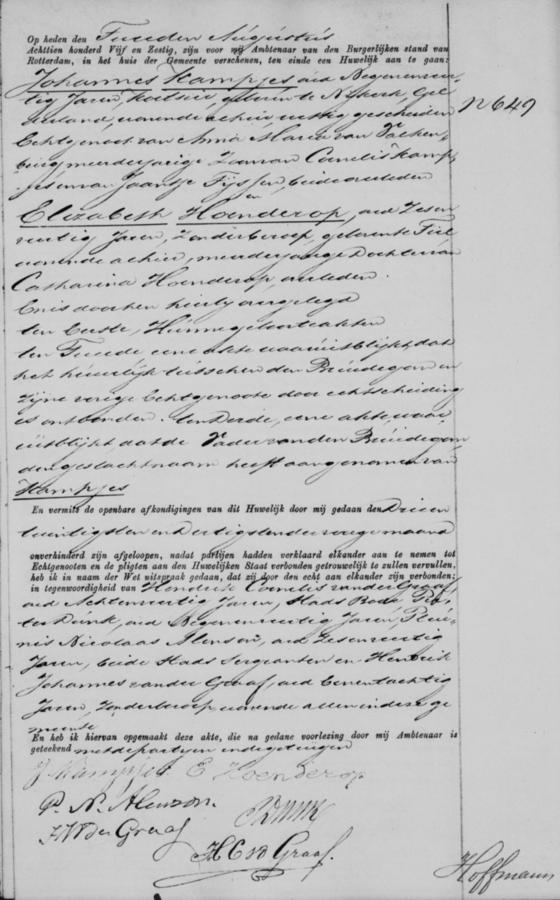 Op heden den Tweeden Augustus
Achttien honderd Vijf en Zestig, zijn voor mij Ambtenaar van den Burgerlijken stand van
Rotterdam, in het huis der Gemeente verschenen, ten einde een Huwelijk aan te gaan:
Johannes Kampjes oud Negenenveer-
tig Jaren, Koetsier, geboren te Nijkerk, Gel-
derland, wonende alhier, wettig gescheiden
Echtgenoot van Anna Maria van Valken-
burg, meerderjarige Zoon van Cornelis Kamp-
jes en van Jaantje Tijssen, beide overleden
en
Elizabeth Hoenderop, oud Zesen
veertig Jaren, Zonder beroep, geboren te Tiel
wonende alhier, meerderjarige Dochter van
Catharina Hoenderop, overleden.
En is door hen hierbij overgelegd
ten Eerste, Hunne geboorteakten
ten Tweede, eene akte waaruit blijkt, dat
het huwelijk tusschen den Bruidegom en
zijne vorige Echtgenoote door echtscheiding
is ontbonden. ten Derde, eene akte, waar
uit blijkt, dat de Vader van den Bruidegom
den geslachtnaam heeft aangenomen van
Kampjes
En vermits de openbare afkondigingen van dit Huwelijk door mij gedaan den Drieen
twintigsten en Dertigsten der vorige maand
onverhinderd zijn afgeloopen, nadat partijen hadden verklaard elkander aan te nemen tot
Echtgenooten en de pligten aan den Huwelijken Staat verbonden getrouwelijk te zullen vervullen,
heb ik in naam der Wet uitspraak gedaan, dat zij door den echt aan elkander zijn verbonden;
in tegenwoordigheid van Hendrik Cornelis van der Graaf
oud Achtenveertig Jaren, Stads Bode Pie-
ter Dunk, oud Negenenveertig Jaren, 
Nicolaas Alenson, oud Zesenveertig
Jaren, beide Stads Sergeanten en Hendrik
Johannes van der Graaf, oud Eenentachtig
Jaren, Zonder beroep, wonende allen in deze ge
meente
En heb ik hiervan opgemaakt deze akte, die na gedane voorlezing door mij Ambtenaar is
geteekend met de partijen en de getuigen
J Kampjes E Hoenderop
P. N. Alenson.
P Dunk
HJVDer Graaf
H C vd Graaf.
N 649
Hoffmann